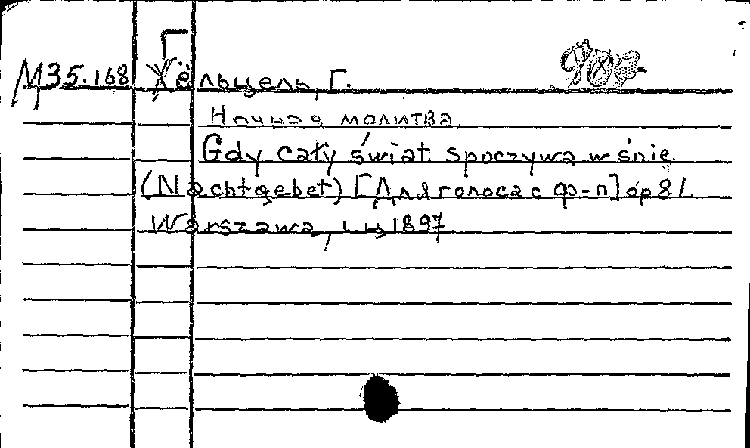 М35.168 Гёльцель, Г.
Ночная молитва
Gdy cały świat spoczywa w śnie
(Nachtgebet) [Для голоса с ф-п] op 81.
Warszawa, 1897